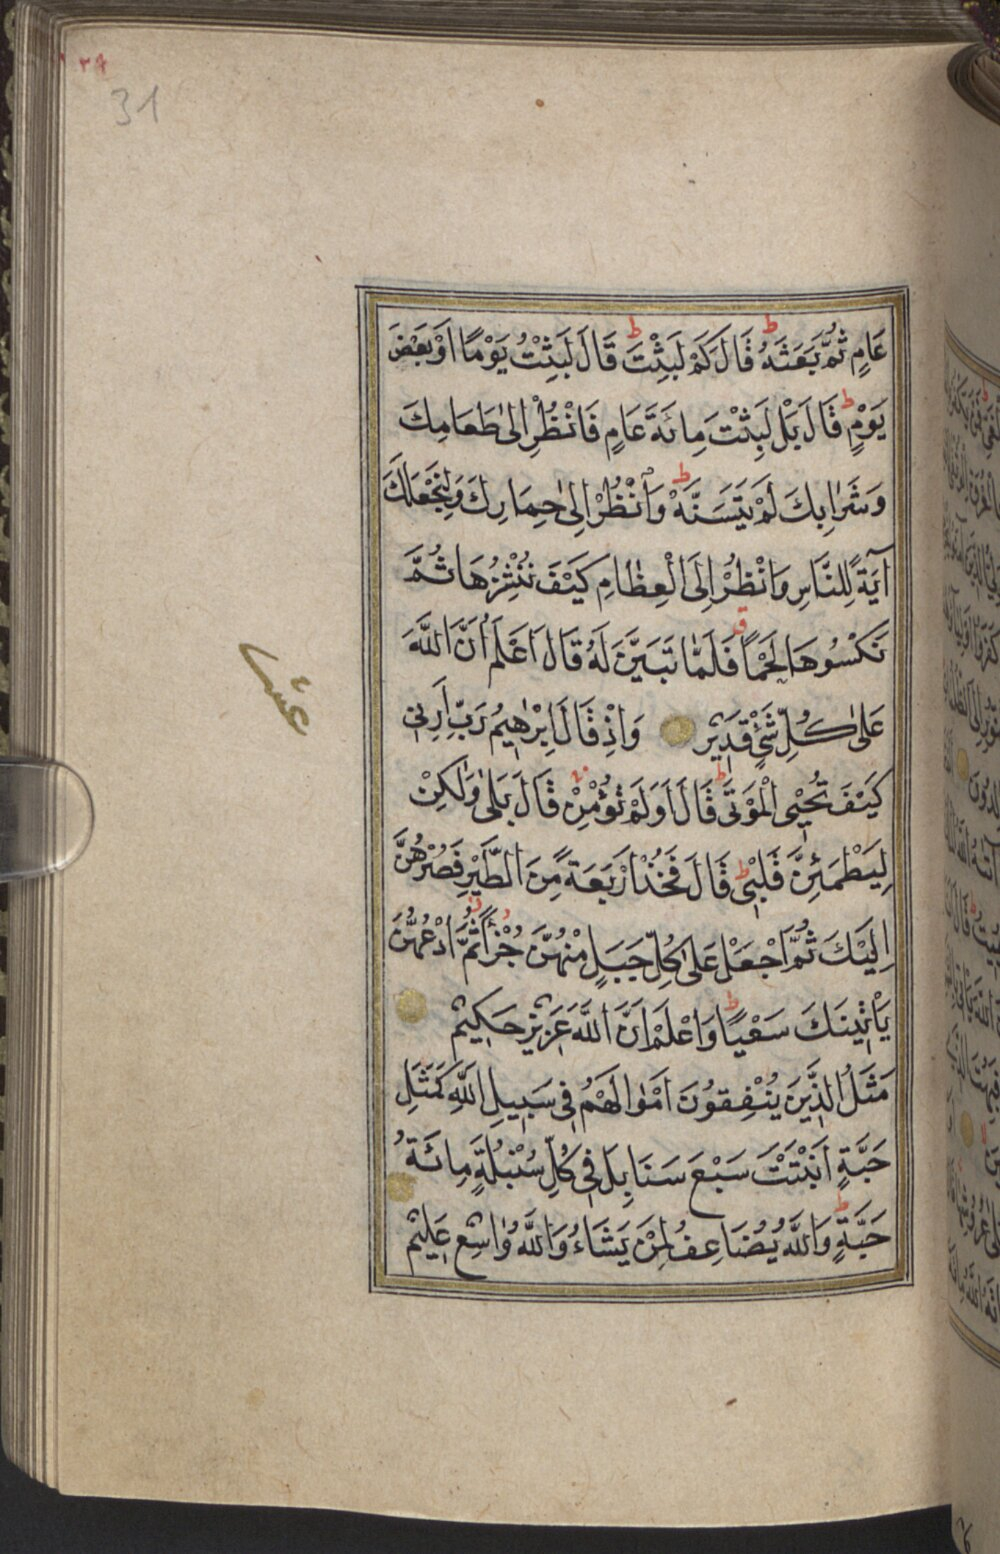 ١٣٩
31
عَامٍ ثُمَّ بَعَثَهُ قَالَ كَمْ لَبِثْتَ قَالَ لَبِثْتُ يَوْمًا اَوْ بَعْضَ
يَوْمٍ قَالَ بَلْ لَبِثْتَ مِائَةَ عَامٍ فَانْظُرْ اِلٰى طَعَامِكَ
وَشَرَابِكَ لَمْ يَتَسَنَّهْ وَانْظُرْ اِلٰى حِمَارِكَ وَلِنَجْعَلَكَ
آيَةً لِلنَّاسِ وَانْظُرْ اِلَى الْعِظَامِ كَيْفَ نُنْشِزُهَا ثُمَّ
نَكْسُوهَا لَحْمًا فَلَمَّا تَبَيَّنَ لَهُ قَالَ اَعْلَمُ اَنَّ اللَّهَ
عَلٰى كُلِّ شَيْءٍ قَدِيرٌ وَاِذْ قَالَ اِبْرٰهِيمُ رَبِّ اَرِنِى
كَيْفَ تُحْيِى الْمَوْتٰى قَالَ اَوَلَمْ تُؤْمِنْ قَالَ بَلٰى وَلٰكِنْ
لِيَطْمَئِنَّ قَلْبِى قَالَ فَخُذْ اَرْبَعَةً مِنَ الطَّيْرِ فَصُرْهُنَّ
اِلَيْكَ ثُمَّ اجْعَلْ عَلٰى كُلِّ جَبَلٍ مِنْهُنَّ جُزْأً ثُمَّ ادْعُهُنَّ
يَأْتِينَكَ سَعْيًا وَاعْلَمْ اَنَّ اللَّهَ عَزِيزٌ حَكِيمٌ
مَثَلُ الَّذِينَ يُنْفِقُونَ اَمْوٰالَهُمْ فِى سَبِيلِ اللَّهِ كَمَثَلِ
حَبَّةٍ اَنْبَتَتْ سَبْعَ سَنَابِلَ فِى كُلِّ سُنْبُلَةٍ مِائَةُ
حَبَّةٍ وَاللَّهُ يُضَاعِفُ لِمَنْ يَشَاءُ وَاللَّهُ وٰاسِعٌ عَلِيمٌ
عشر